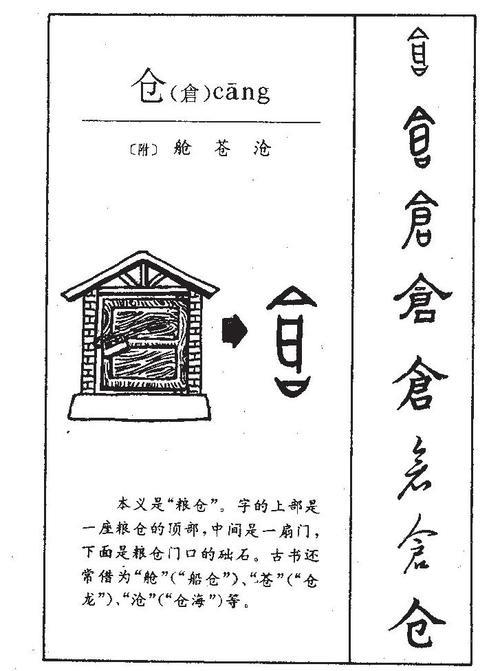 仓(倉)cāng
〔附〕 舱 苍 沧
本义是“粮仓”。字的上部是
一座粮仓的顶部，中间是一扇门，
下面是粮仓门口的础石。古书还
常借为“舱”(“船仓”)、“苍”(“仓
龙”)、“沧”(“仓海”)等。
倉
倉
倉
倉
仓